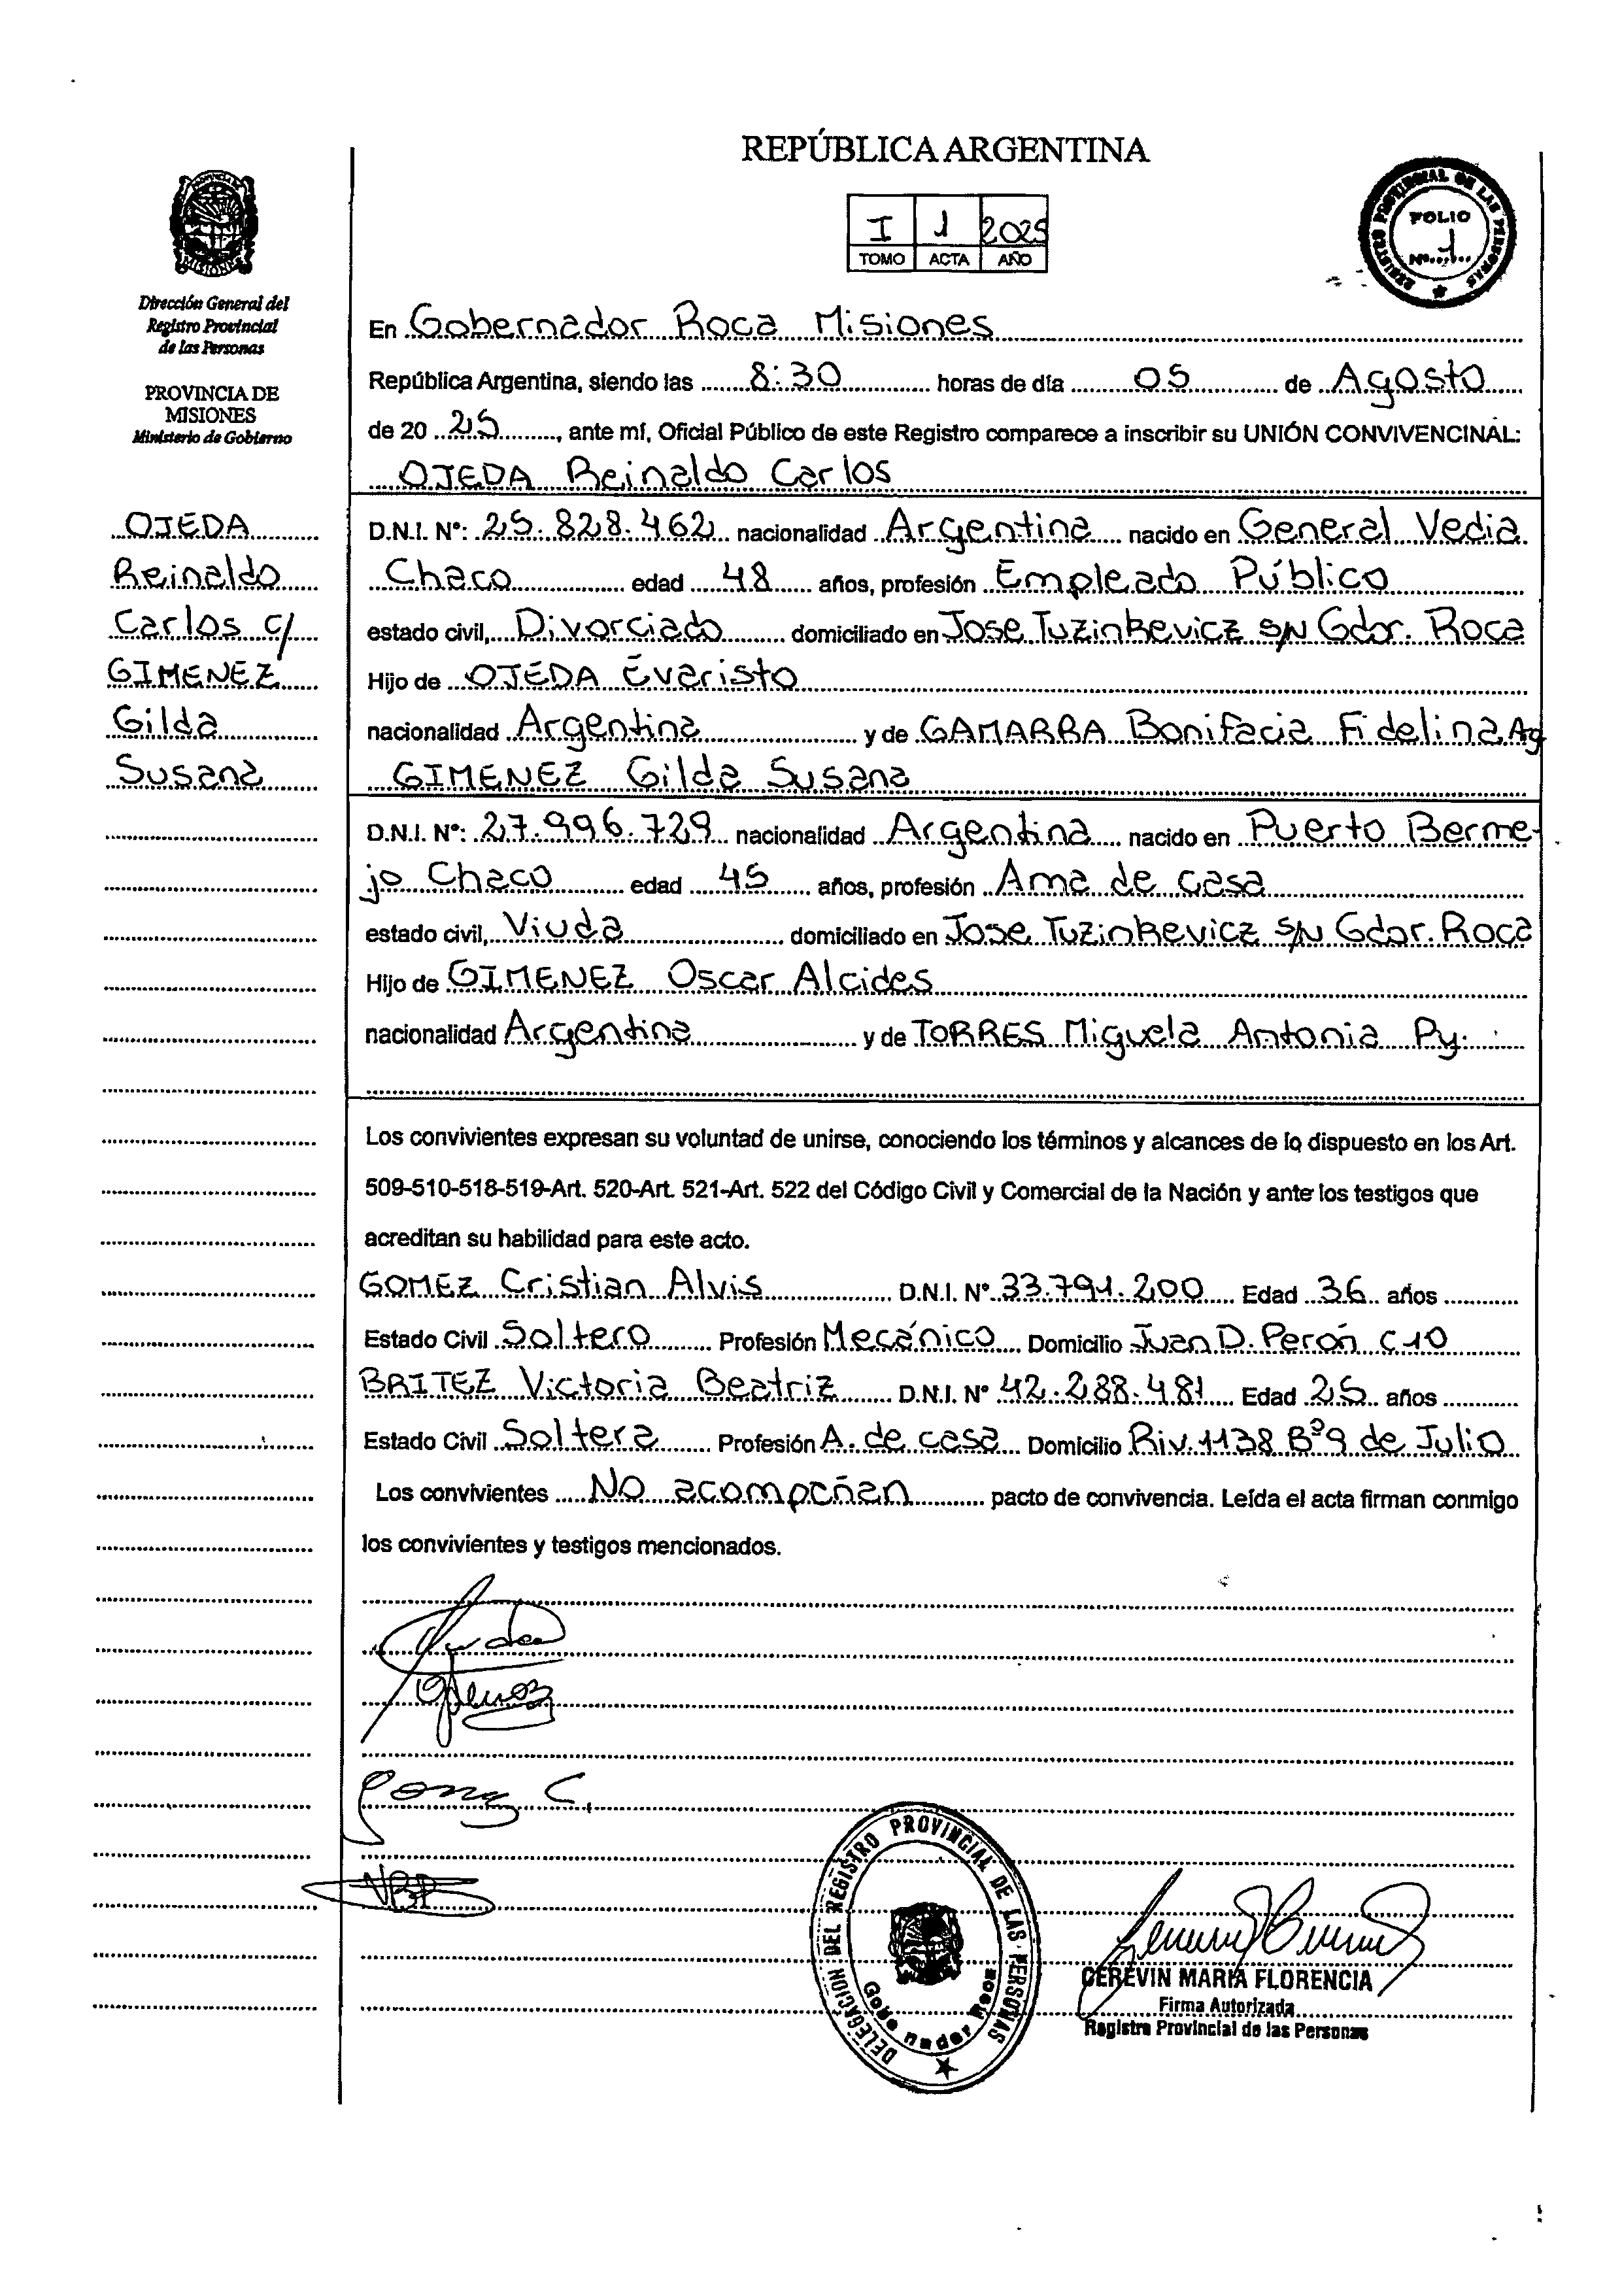 REPÚBLICA ARGENTINA
I 1 2025
TOMO ACTA AÑO
REGISTRO PROVINCIAL DE LAS PERSONAS
FOLIO
Nº 1
PROVINCIA DE
MISIONES
Dirección General del
Registro Provincial
de las Personas
PROVINCIA DE
MISIONES
Ministerio de Gobierno
OJEDA
Reinaldo
Carlos c/
GIMENEZ
Gilda
Susana
En Gobernador Roca Misiones
República Argentina, siendo las 8:30 horas de día 05 de Agosto
de 20 25, ante mí, Oficial Público de este Registro comparece a inscribir su UNIÓN CONVIVENCINAL:
OJEDA Reinaldo Carlos
D.N.I. Nº: 25.828.462 nacionalidad Argentina nacido en General Vedia
Chaco edad 48 años, profesión Empleado Público
estado civil, Divorciado domiciliado en Jose Tuzinkevicz s/N Gdor. Roca
Hijo de OJEDA Evaristo
nacionalidad Argentina y de GAMARRA Bonifacia Fidelina Ag
GIMENEZ Gilda Susana
D.N.I. Nº: 27.996.729 nacionalidad Argentina nacido en Puerto Berme-
jo Chaco edad 45 años, profesión Ama de casa
estado civil, Viuda domiciliado en Jose Tuzinkevicz s/N Gdor. Roca
Hijo de GIMENEZ Oscar Alcides
nacionalidad Argentina y de TORRES Miguela Antonia Py.
Los convivientes expresan su voluntad de unirse, conociendo los términos y alcances de lo dispuesto en los Art.
509-510-518-519-Art. 520-Art. 521-Art. 522 del Código Civil y Comercial de la Nación y ante los testigos que
acreditan su habilidad para este acto.
GOMEZ Cristian Alvis D.N.I. Nº 33.791.200 Edad 36 años
Estado Civil Soltero Profesión Mecánico Domicilio Juan D. Perón C 10
BRITEZ Victoria Beatriz D.N.I. Nº 42.288.481 Edad 25 años
Estado Civil Soltera Profesión A. de casa Domicilio Riv. 1138 Bº 9 de Julio
Los convivientes No acompañan pacto de convivencia. Leída el acta firman conmigo
los convivientes y testigos mencionados.
Gomez C.
VBP
DELEGACION DEL REGISTRO PROVINCIAL DE LAS PERSONAS
Gobernador Roca
CEREVIN MARIA FLORENCIA
Firma Autorizada
Registro Provincial de las Personas